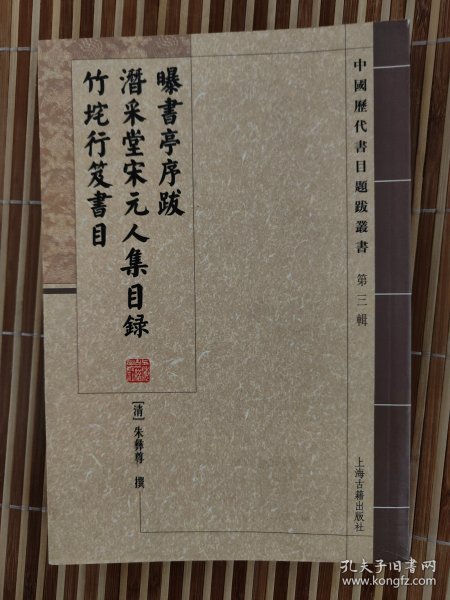 中國歷代書目題跋叢書 第三輯
曝書亭序跋
潛采堂宋元人集目録
竹垞行笈書目
[清] 朱彝尊 撰
上海古籍出版社
孔夫子旧书网
www.kongfz.com